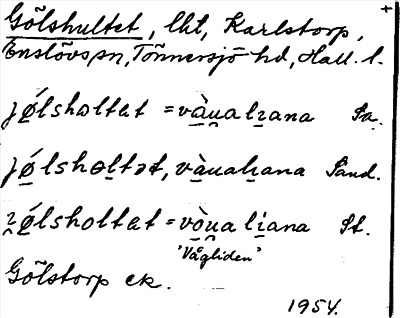 Gölshultet, lht, Karlstorp, +
Enslövs sn, Tönnersjö hd, Hall. l.
jǿlshəltət = vàualiana Sa.
jǿlshəltət, vàualiana Sand.
ɂǿlsholtət = vòualíana St.
'Vågliden'
Gölstorp ek.
1954.